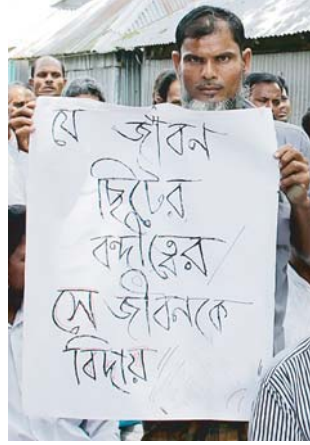 যে জীবন
ছিটের
বন্দীত্বের/
সে জীবনকে
বিদায়//